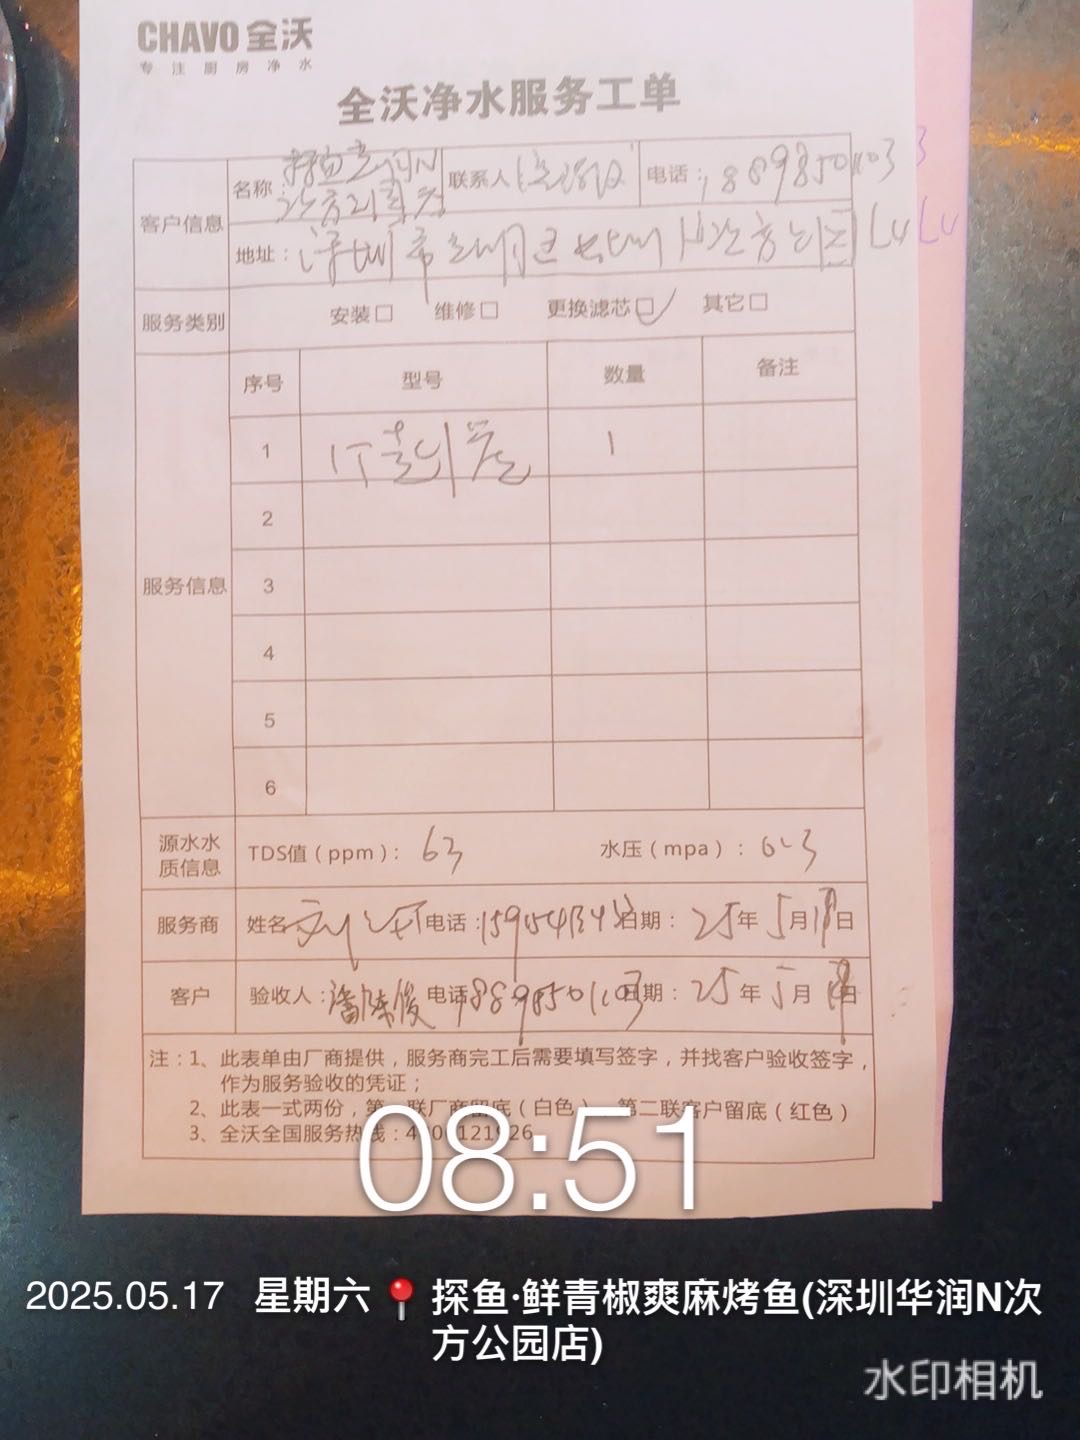 CHAVO 全沃
专注厨房净水
全沃净水服务工单
客户信息 名称： 联系人 电话：18898501103
地址：深圳市 N次方公园L4
服务类别 安装□ 维修□ 更换滤芯□✓ 其它□
服务信息 序号 型号 数量 备注
1 1
2
3
4
5
6
源水水质信息 TDS值（ppm）：63 水压（mpa）：0.3
服务商 姓名 电话： 日期：25年5月 日
客户 验收人：潘 俊 电话18898501103 日期：25年5月 日
注：1、此表单由厂商提供，服务商完工后需要填写签字，并找客户验收签字，
作为服务验收的凭证；
2、此表一式两份，第一联厂商留底（白色） 第二联客户留底（红色）
3、全沃全国服务热线：
08:51
2025.05.17 星期六 探鱼·鲜青椒爽麻烤鱼(深圳华润N次
方公园店)
水印相机